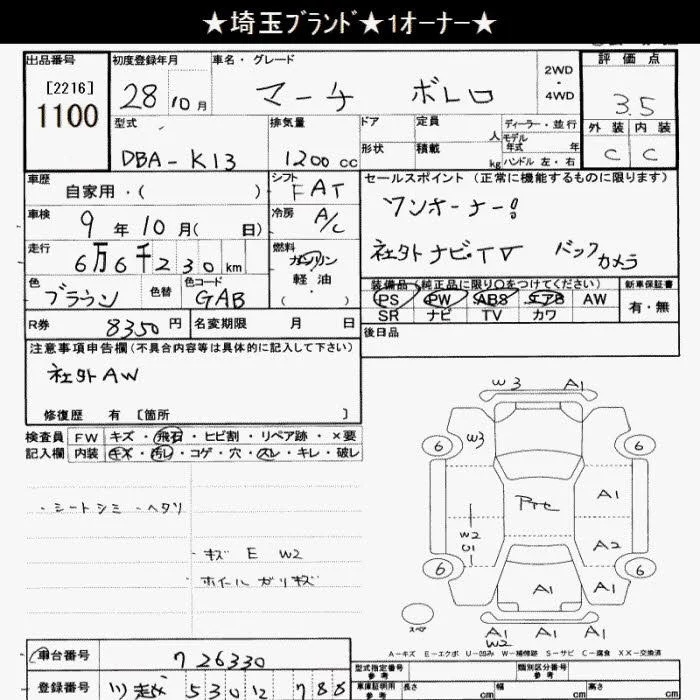 ★埼玉ブランド★1オーナー★
出品番号 初度登録年月 車名・グレード 2WD・4WD 評価点
[2216]
1100
28 10月 マーチ ボレロ 3.5
型式 排気量 ドア 定員 人 ディーラー・並行 外装 内装
モデル年式 年
DBA-K13 1200cc 形状 積載 kg ハンドル 左・右 C C
車歴 自家用・( ) シフト FAT セールスポイント (正常に機能するものに限ります)
車検 9年10月( 日) 冷房 A/C ワンオーナー!
走行 6万6千230km 燃料 ガソリン 社外ナビ・TV バックカメラ
軽油・
( )
色 ブラウン 色替 色コード GAB
装備品(純正品に限り○をつけてください) 新車保証書
PS PW ABS エアB AW 有・無
SR ナビ TV カワ
R券 8350円 名変期限 月 日 後日品
注意事項申告欄(不具合内容等は具体的に記入して下さい)
社外AW
修復歴 有 [箇所 ]
検査員 FW キズ・飛石・ヒビ割・リペア跡・×要
記入欄 内装 キズ・汚レ・コゲ・穴・スレ・キレ・破レ
・シートシミ ・ヘタリ
・キズ E W2
・ホイールガリキズ
W3 A1
6 W3 6
Pte A1
W2
U1 A2
6 A1 A1 6
スペア A1 A1 A1
W2
A-キズ E-エクボ U-凹み W-補修跡 S-サビ C-腐食 XX-交換済
車台番号 726330 型式指定番号 参考 類別区分番号 参考
登録番号 川越 530 り 788 車庫証明用 参考 長さ cm 幅 cm 高さ cm